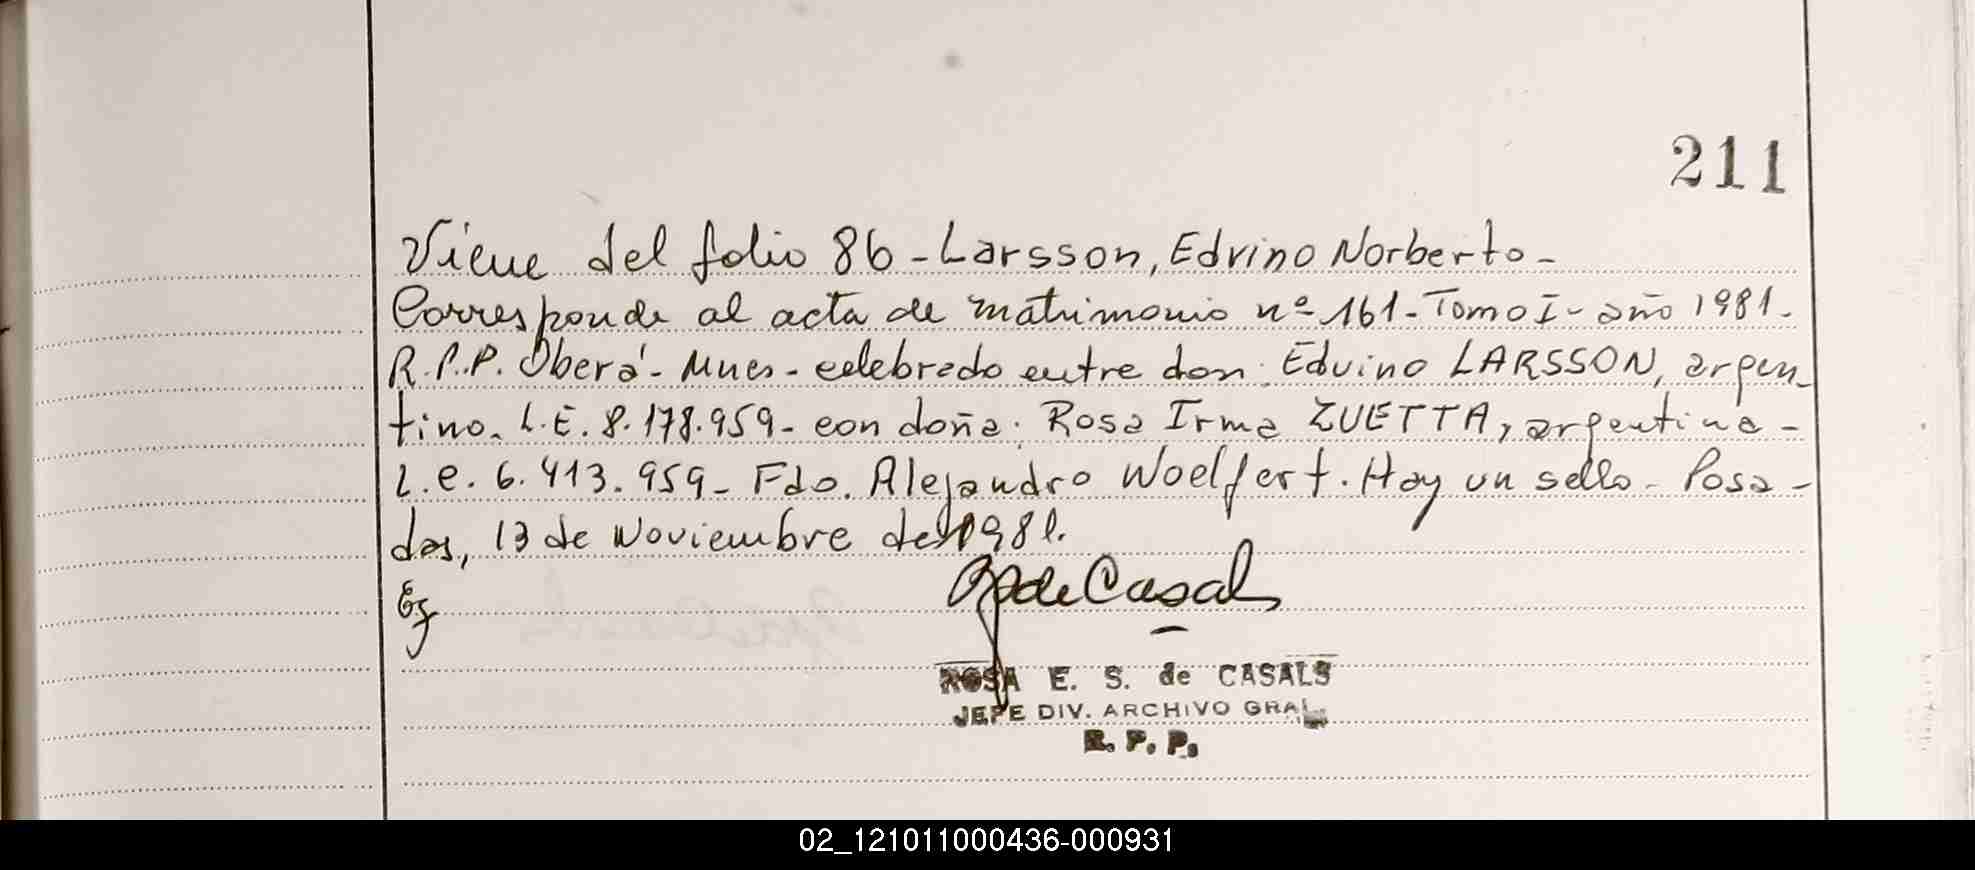 211
Viene del folio 86 - Larsson, Edvino Norberto -
Corresponde al acta de matrimonio nº 161 - Tomo I - año 1981 -
R.P.P. Oberá - Mnes - celebrado entre don: Edvino LARSSON, argen-
tino. L.E. 8.178.959 - con doña: Rosa Irma ZUETTA, argentina -
L.e. 6.413.959 - Fdo. Alejandro Woelfert. Hay un sello - Posa-
das, 13 de Noviembre de 1981.
de Casals
ROSA E. S. de CASALS
JEFE DIV. ARCHIVO GRAL.
R. P. P.
02_121011000436-000931